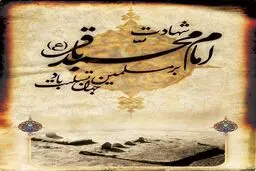 شهادت
امام محمد باقر (ع)
بر مسلمین جهان تسلیت باد